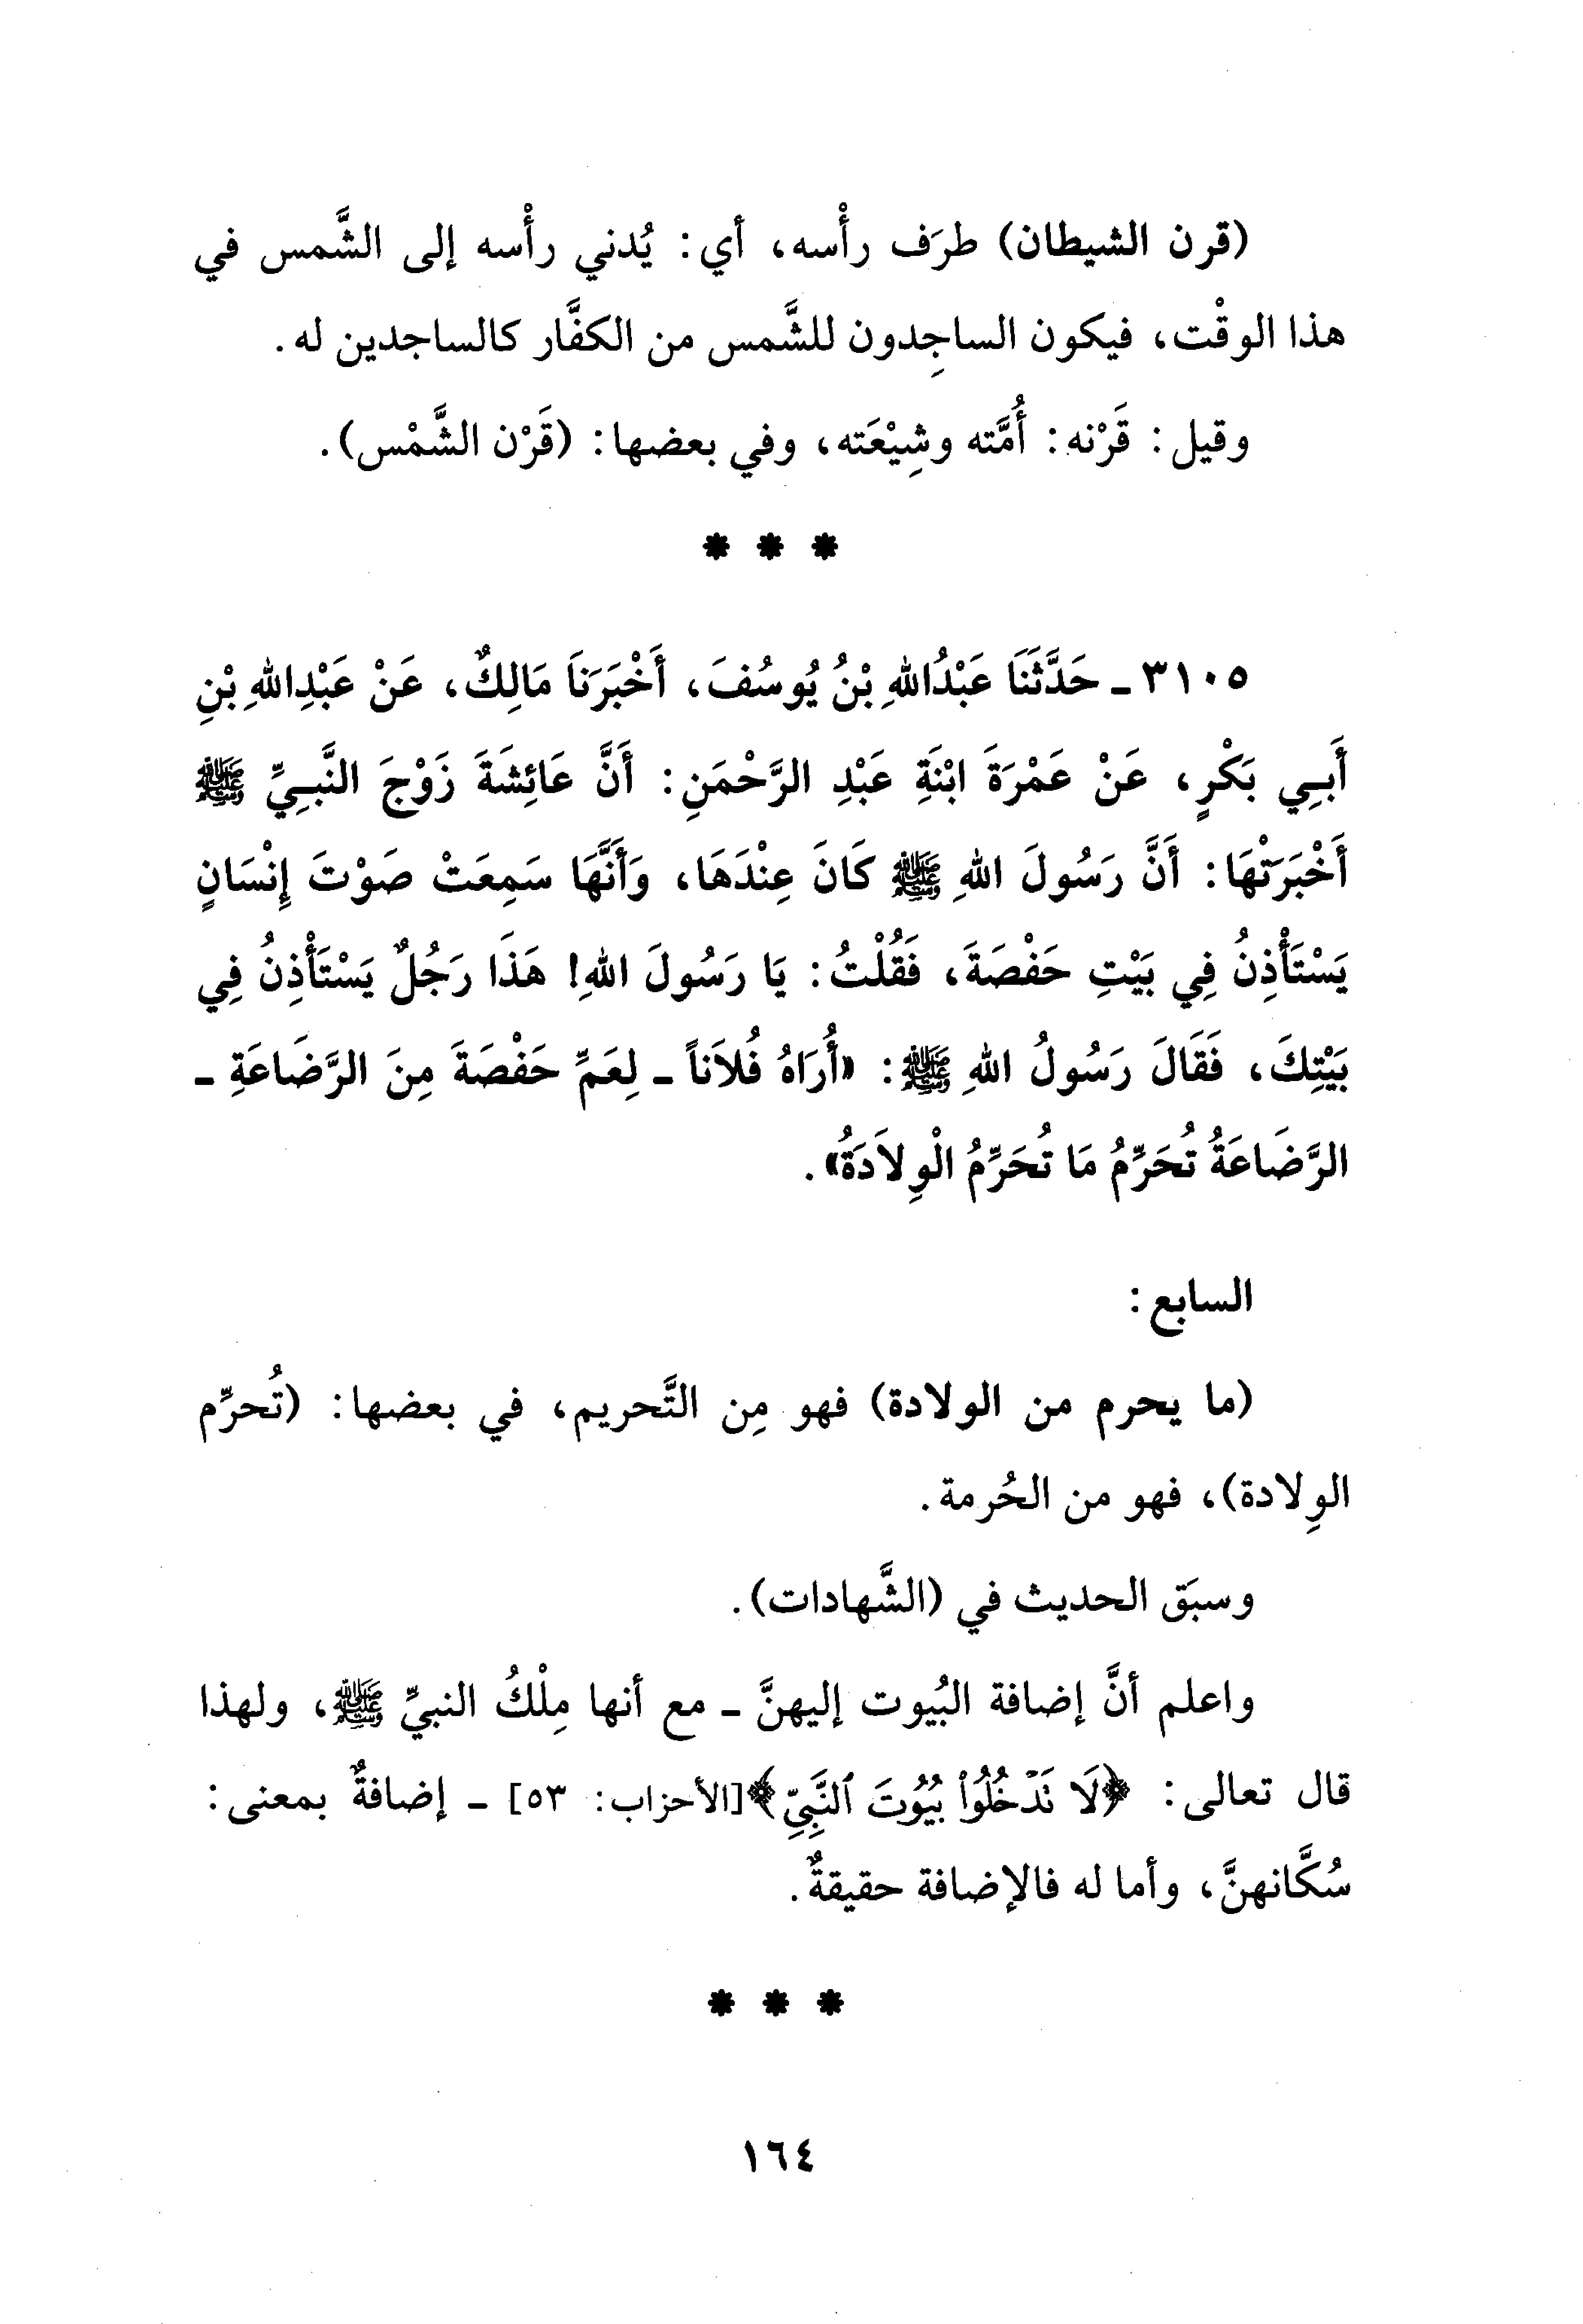 (قرن الشيطان) طرَف رأْسه، أي: يُدني رأْسه إلى الشَّمس في
هذا الوقْت، فيكون الساجِدون للشَّمس من الكفَّار كالساجدين له.
وقيل: قَرْنه: أُمَّته وشِيْعَته، وفي بعضها: (قَرْن الشَّمْس).
* * *
٣١٠٥ ـ حَدَّثَنَا عَبْدُاللهِ بْنُ يُوسُفَ، أَخْبَرَنَا مَالِكٌ، عَنْ عَبْدِاللهِ بْنِ
أَبِي بَكْرٍ، عَنْ عَمْرَةَ ابْنَةِ عَبْدِ الرَّحْمَنِ: أَنَّ عَائِشَةَ زَوْجَ النَّبِيِّ ﷺ
أَخْبَرَتْهَا: أَنَّ رَسُولَ اللهِ ﷺ كَانَ عِنْدَهَا، وَأَنَّهَا سَمِعَتْ صَوْتَ إِنْسَانٍ
يَسْتَأْذِنُ فِي بَيْتِ حَفْصَةَ، فَقُلْتُ: يَا رَسُولَ اللهِ! هَذَا رَجُلٌ يَسْتَأْذِنُ فِي
بَيْتِكَ، فَقَالَ رَسُولُ اللهِ ﷺ: «أُرَاهُ فُلاَناً ـ لِعَمِّ حَفْصَةَ مِنَ الرَّضَاعَةِ ـ
الرَّضَاعَةُ تُحَرِّمُ مَا تُحَرِّمُ الْوِلاَدَةُ».
السابع:
(ما يحرم من الولادة) فهو مِن التَّحريم، في بعضها: (تُحرِّم
الوِلادة)، فهو من الحُرمة.
وسبَق الحديث في (الشَّهادات).
واعلم أنَّ إضافة البُيوت إليهنَّ ـ مع أنها مِلْكُ النبيِّ ﷺ، ولهذا
قال تعالى: ﴿لَا تَدْخُلُوا۟ بُيُوتَ ٱلنَّبِيِّ﴾[الأحزاب: ٥٣] ـ إضافةٌ بمعنى:
سُكَّانهنَّ، وأما له فالإضافة حقيقةٌ.
* * *
١٦٤